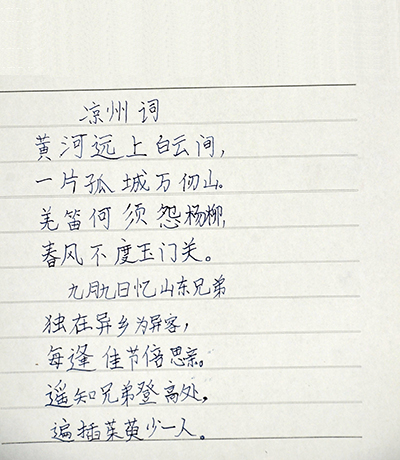 凉州词
黄河远上白云间,
一片孤城万仞山。
羌笛何须怨杨柳,
春风不度玉门关。
九月九日忆山东兄弟
独在异乡为异客,
每逢佳节倍思亲。
遥知兄弟登高处,
遍插茱萸少一人。